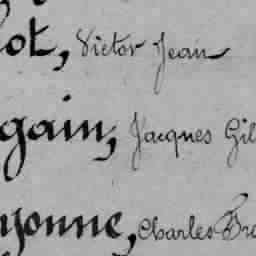 ot, Victor Jean
gain, Jacques Gil
yonne, Charles Fra